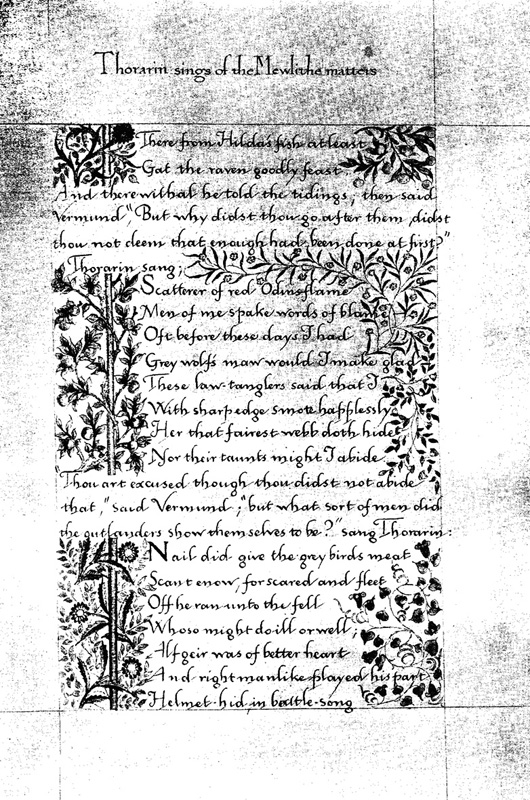 Thorarin sings of the Mewlithe matters
There from Hilda's fish at least
Gat the raven goodly feast
And therewithal he told the tidings; then said
Vermund "But why didst thou go after them, didst
thou not deem that enough had been done at first?"
Thorarin sang;
Scatterer of red Odinsflame
Men of me spake words of blame
Oft before these days I had
Grey wolfs maw would I make glad
These law-tanglers said that I
With sharp edge smote haplessly
Her that fairest webb doth hide
Nor their taunts might I abide
Thou art excused though thou didst not abide
that," said Vermund; "but what sort of men did
the outlanders show themselves to be?" sang Thorarin:
Nail did give the grey birds meat
Scant enow, for scared and fleet
Off he ran unto the fell
Whoso might do ill or well;
Alfgeir was of better heart
And right manlike played his part
Helmet-hid in battle-song